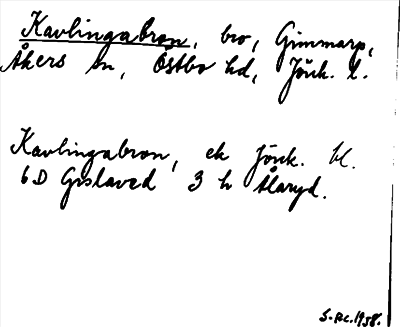 Kavlingabron, bro, Gimmarp,
Åkers sn, Östbo hd, Jönk. l.
Kavlingabron, ek Jönk. bl.
6D Gislaved 3 h Ålaryd.
S.Rc.1958.